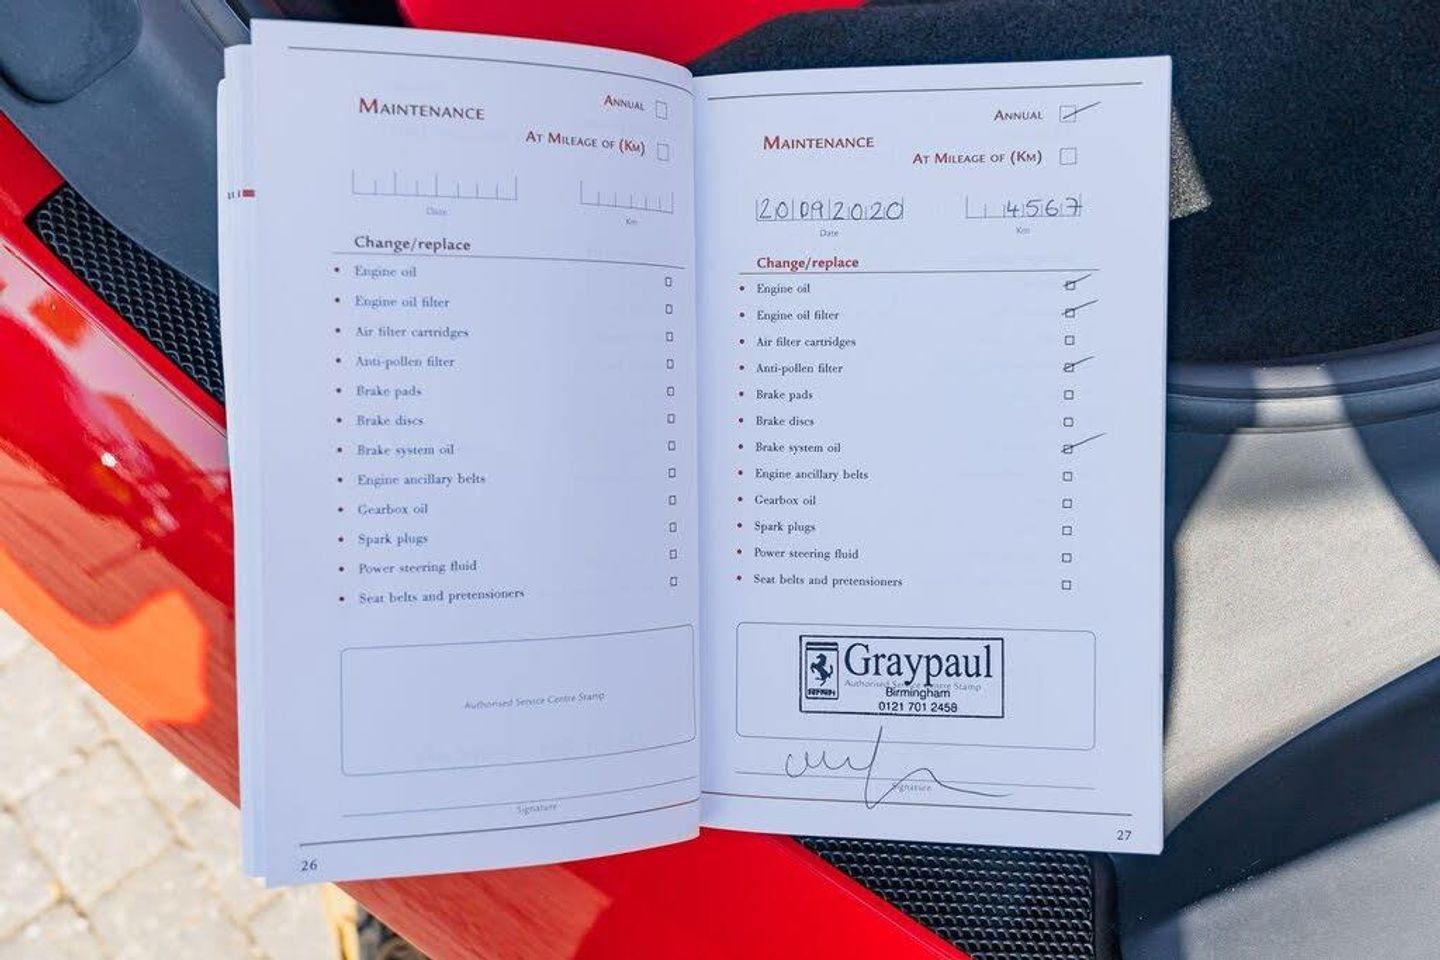 MAINTENANCE
ANNUAL
AT MILEAGE OF (KM)
Date
Km
Change/replace
• Engine oil
• Engine oil filter
• Air filter cartridges
• Anti-pollen filter
• Brake pads
• Brake discs
• Brake system oil
• Engine ancillary belts
• Gearbox oil
• Spark plugs
• Power steering fluid
• Seat belts and pretensioners
Authorised Service Centre Stamp
Signature
26
MAINTENANCE
ANNUAL
AT MILEAGE OF (KM)
20 09 2020
4567
Date
Km
Change/replace
• Engine oil
• Engine oil filter
• Air filter cartridges
• Anti-pollen filter
• Brake pads
• Brake discs
• Brake system oil
• Engine ancillary belts
• Gearbox oil
• Spark plugs
• Power steering fluid
• Seat belts and pretensioners
Graypaul
Authorised Service Centre Stamp
Birmingham
0121 701 2458
Signature
27